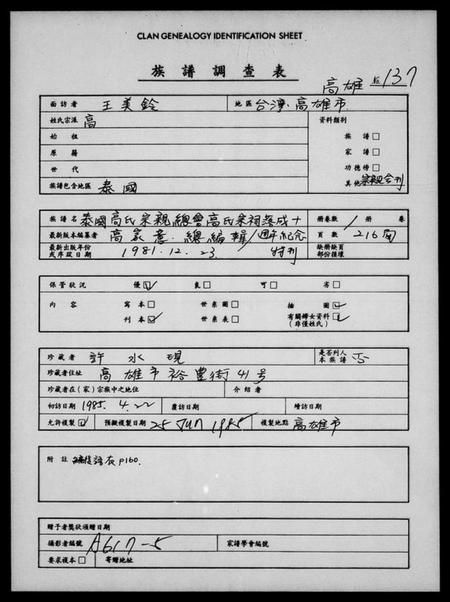 CLAN GENEALOGY IDENTIFICATION SHEET
族譜調查表
高雄 137
面訪者 王美銓 地區 台灣.高雄市
姓氏宗派 高 資料類别
始祖 族譜
原籍 家譜
世代 功德榜
族譜包含地區 泰國 其他 宗親會刊
族譜名 泰國高氏宗親總會高氏宗祠落成十 冊卷數 1 冊 卷
最新版本編纂者 高家意.總編輯/週年紀念 頁數 216面
最新出版年份或序跋日期 1981.12.23 特刊 缺冊缺頁部份損壞
保管狀況 優 良 可 劣
內容 寫本 世系圖 插圖
刊本 世系表 有關婦女資料(非僅姓氏)
珍藏者 許水現 是否列入本族譜 否
珍藏者住址 高雄市裕豐街41号
珍藏者在(家)宗族中之地位 介紹者
初訪日期 1985.4.22 覆訪日期 續訪日期
允許複製 預擬複製日期 25 Jun 1985 複製地點 高雄市
附註 譜在p160.
贈予者獎狀頒贈日期
攝影者編號 A617-5 家譜學會編號
要求複本 寄贈地址